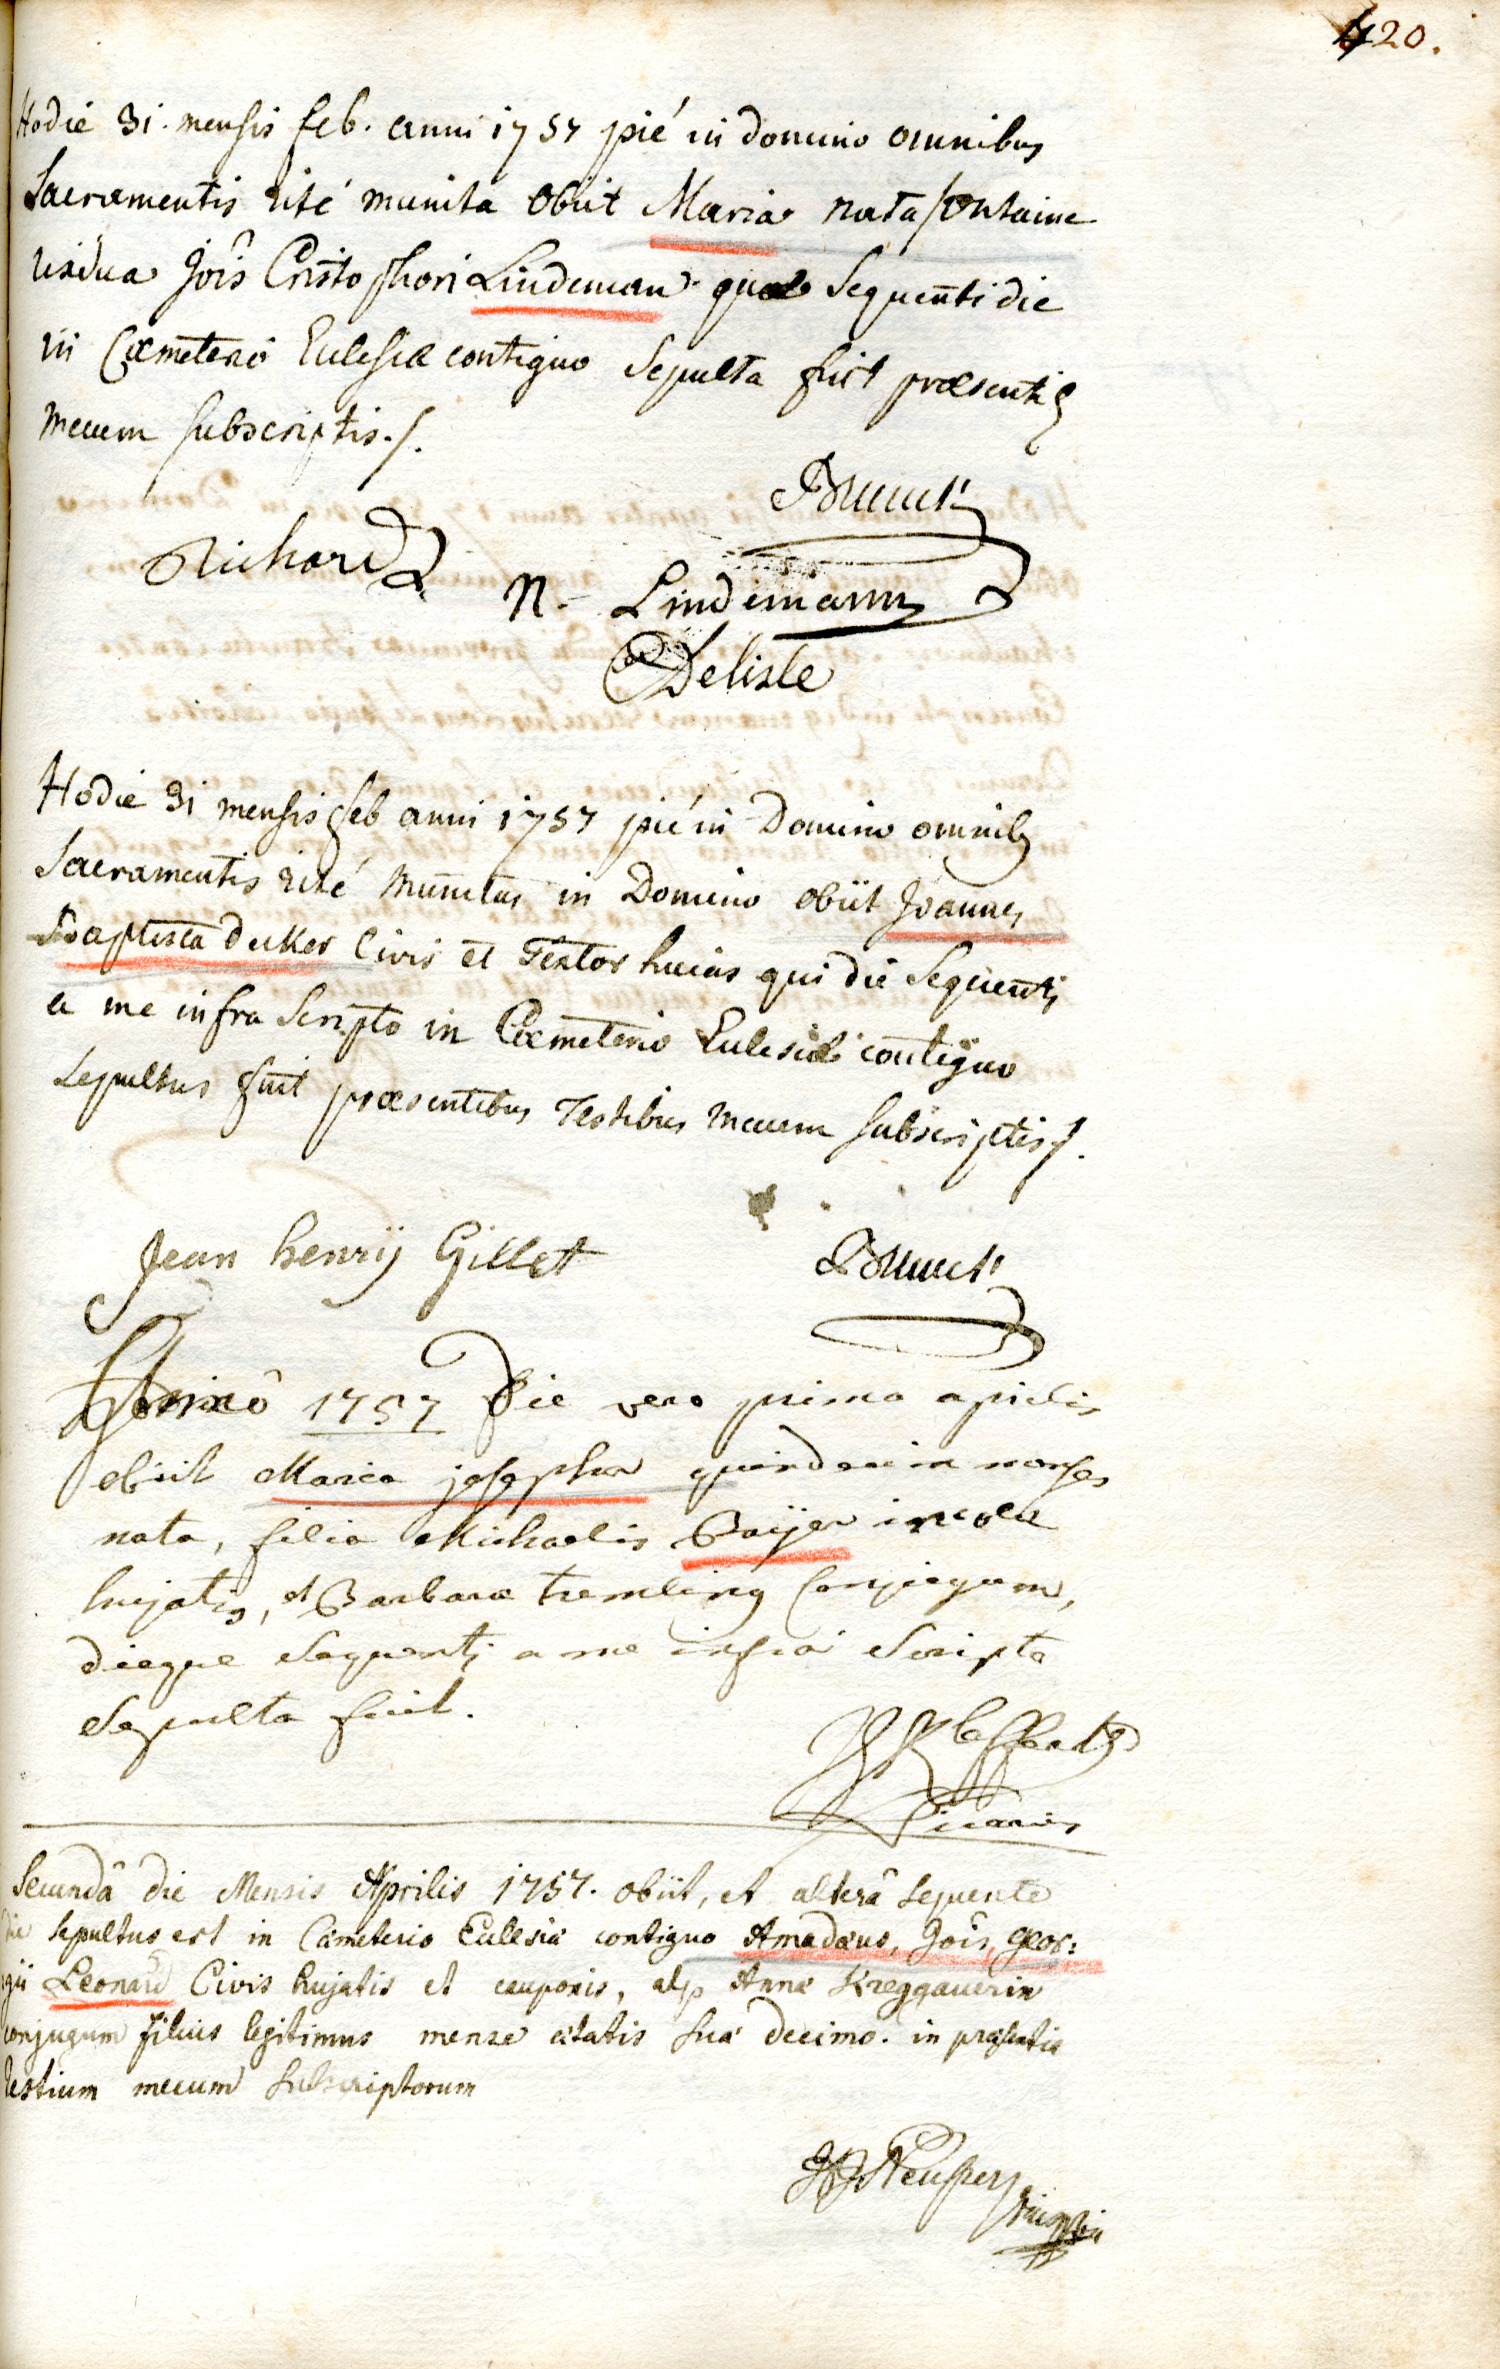 420.
Hodie 31. mensis feb. anni 1757 pié in domino omnibus
Sacramentis rité munita obiit Maria nata fontaine
vidua Jois Cristophori Lindeman quae Sequenti die
in Caemeterio Eclesiae contiguo Sepulta fuit praesentib
mecum subscriptis.
Richard
N. Lindemann
Delisle
Hodie 31 mensis feb anni 1757 pié in Domino omnib
Sacramentis rité munitus in Domino obiit Joannes
Baptista decker Civis et Textor huias qui die Sequenti
a me infra Scripto in Caemeterio Eclesiae contiguo
Sepultus fuit praesentibus Testibus mecum subscriptis.
Jean henrij Gillet
Anno 1757 die vero prima aprilis
obiit Maria josepha quindecim menses
nata, filia Michaelis Baijer incolae
hujatis, et Barbarae tremling Conjugum,
dieque Sequenti a me infra Scripto
Sepulta fuit.
Vicarius
Secundâ die Mensis Aprilis 1757. obiit, et alterâ sequente
die sepultus est in Cameterio Eclesia contiguo Amadaeus, Jois, geor:
gii Leonard Civis hujatis et cauponis, atq Annae Kreggauerin
conjugum filius legitimus mense aetatis sua decimo. in praesentia
testium mecum subscriptorum